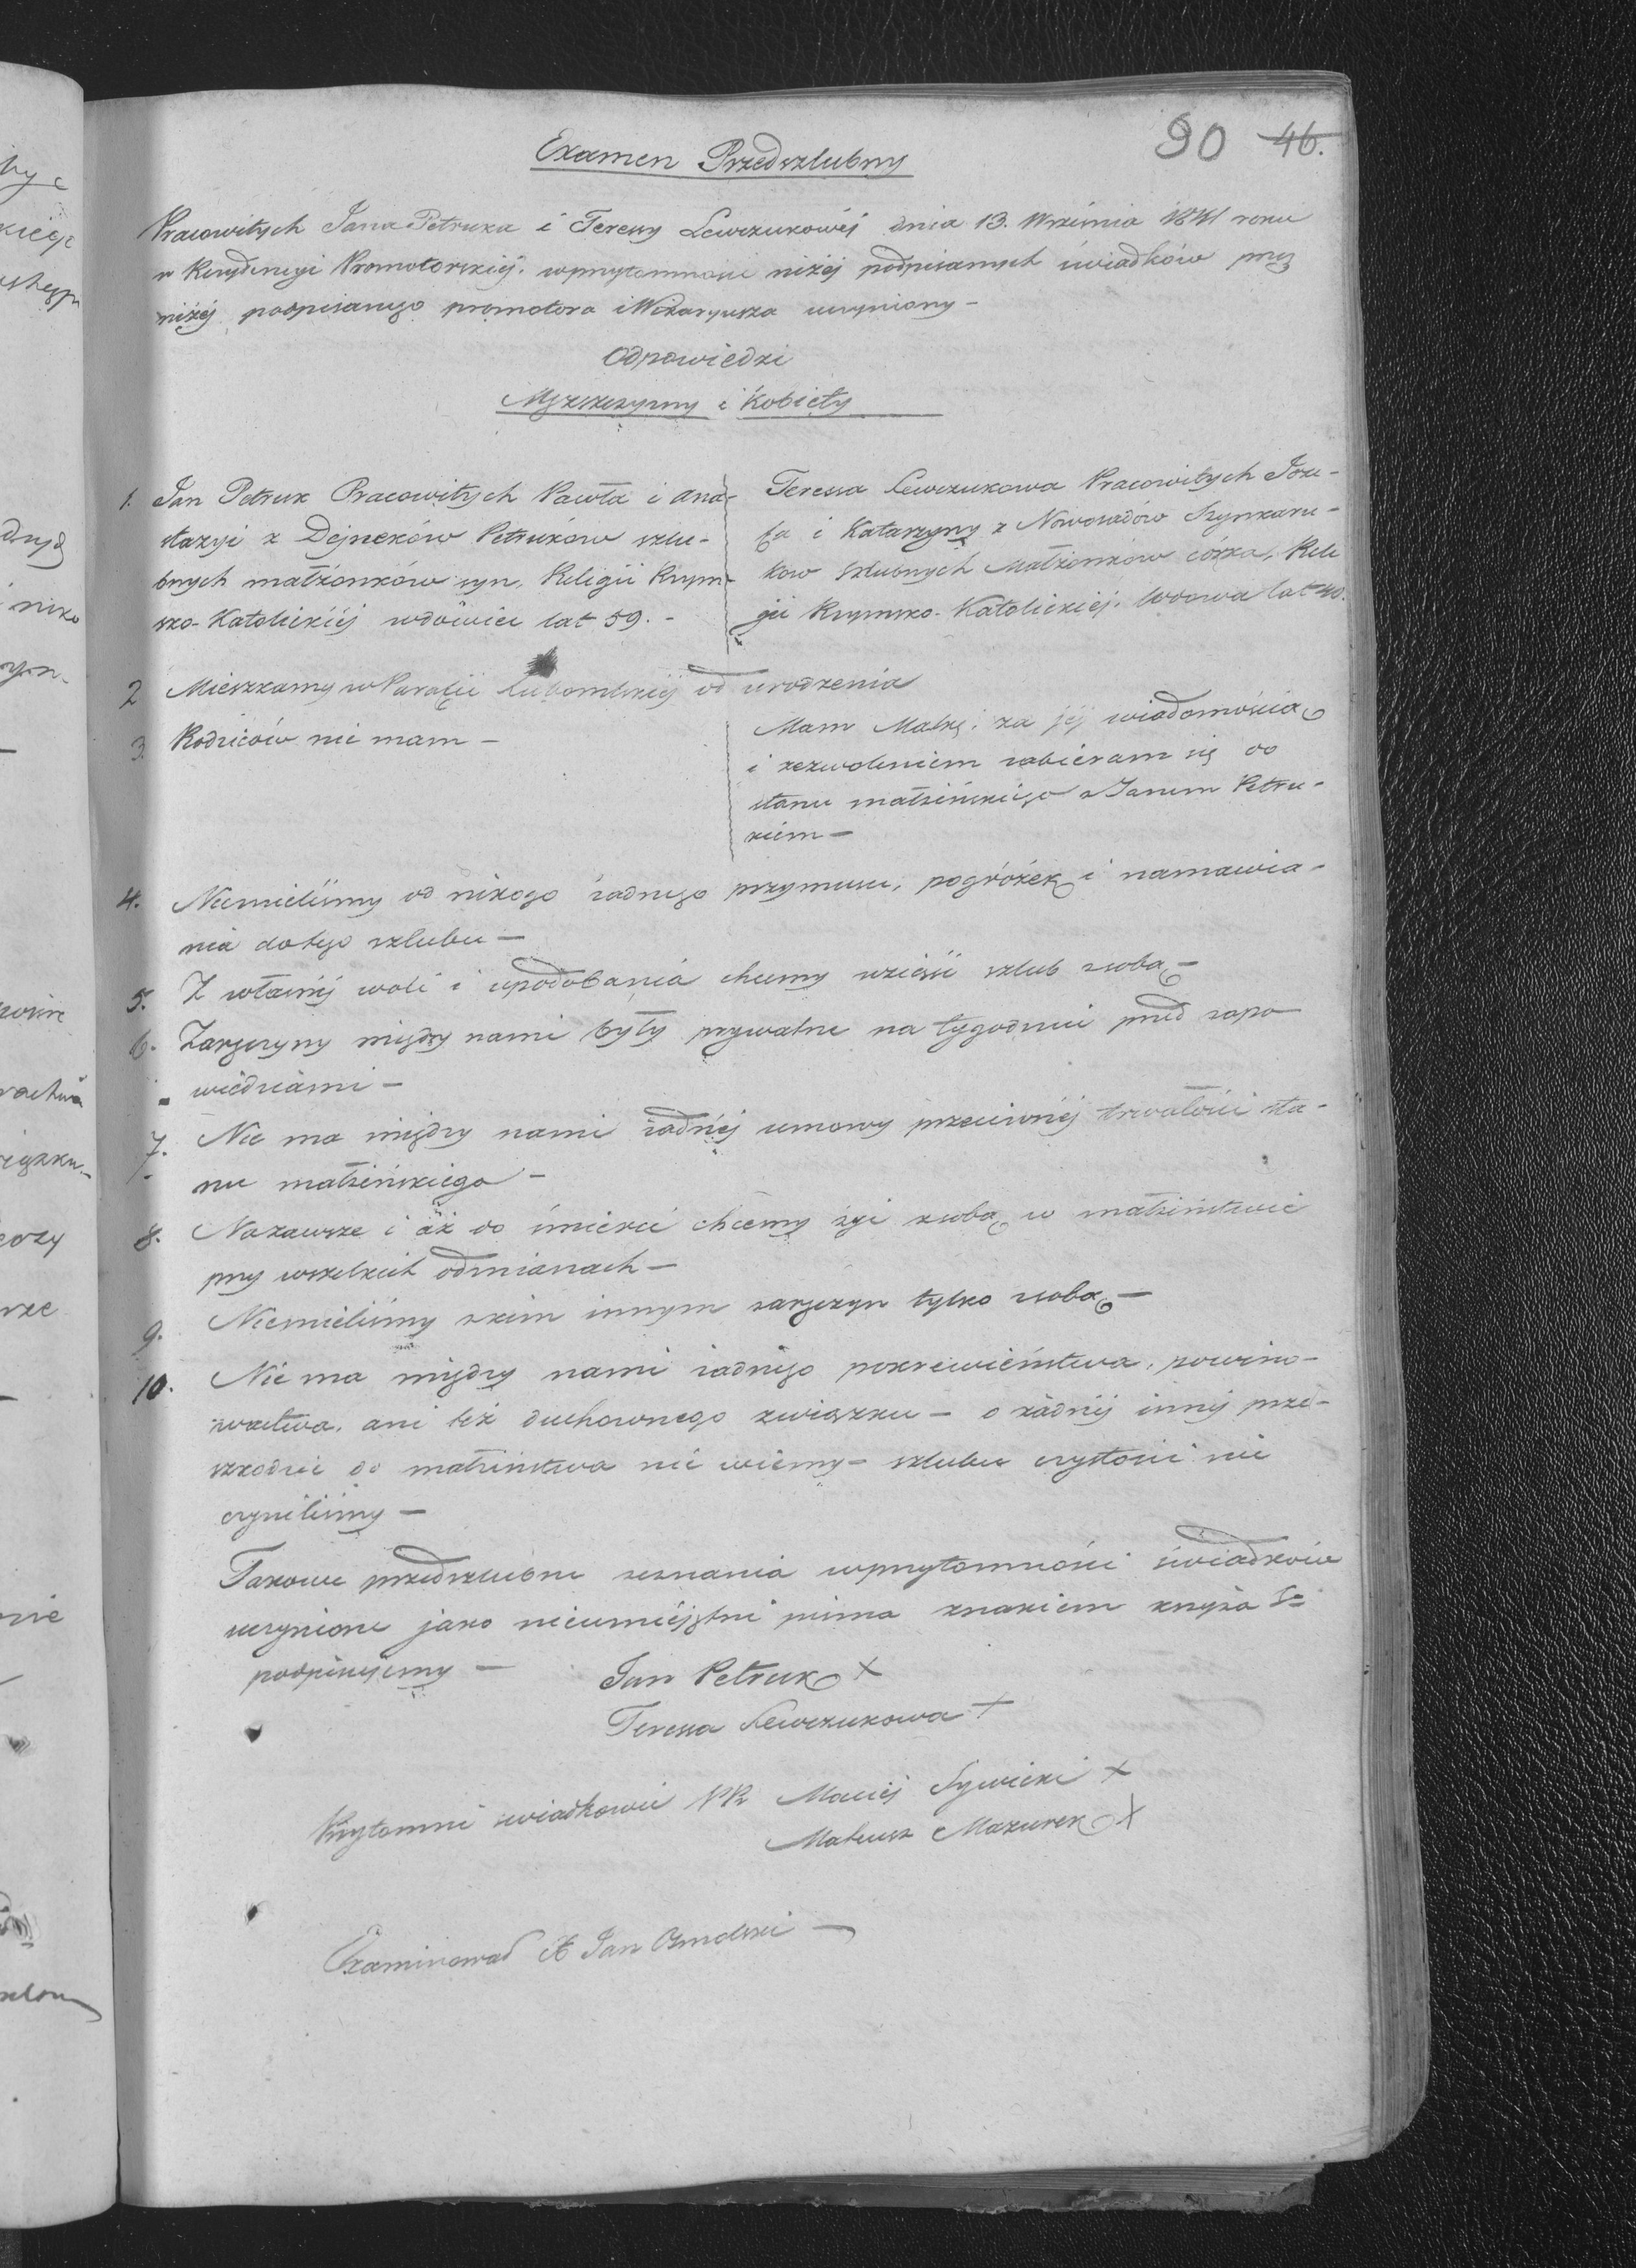 90 46.
Examen Przedszlubny
Pracowitych Jana Petruka i Teressy Lewczukowéj dnia 13. Września 1841 roku
w Rezydencyi Promotorskiéj. wprzytomności niżéj podpisanych świadków przez
niżéj podpisanego promotora i Wikaryusza uczyniony –
Odpowiedzi
Mężczyzny i Kobiéty
1. Jan Petruk Pracowitych Pawła i Ana-
stazyi z Dejneków Petruków szlu-
bnych małżonków syn, Religii Rzym-
sko-Katolickiéj wdowiec lat 59. –
Teressa Lewczukowa Pracowitych Joze-
fa i Katarzyny z Nowosadów Szynkaru-
kow szlubnych Małżonków córka, Reli
gii Rzymsko-Katolickiéj. wdowa lat 40.
2 Mieszkamy w Parafii Lubomlskiéj od urodzenia
3. Rodziców nie mam –
Mam Matkę, za jéj wiadomością
i zezwoleniem zabiéram się do
stanu małżeńskiego z Janem Petru-
kiem –
4. Niemieliśmy od nikogo żadnego przymusu, pogróżek i namawia-
nia do tego szlubu –
5. Z własnéj woli i upodobania chcemy wziąść szlub z sobą –
6. Zaręczyny między nami były prywatne na tygodniu przed zapo
wiedziami –
7. Nie ma między nami żadnéj umowy przeciwnéj trwałości sta-
nu małżeńskiego –
8. Nazawsze i aż do śmierci chcemy żyć z sobą w małżeństwie
przy wszelkich odmianach –
9. Niemieliśmy z kim innym zaręczyn tylko z sobą –
10. Nie ma między nami żadnego pokrewieństwa, powino-
wactwa, ani też duchownego związku – o żadnéj innéj prze-
szkodzie do małżeństwa nie wiémy – szlubu czystości nie
czyniliśmy –
Takowe przedszlubne zeznania wprzytomności świadków
uczynione jako nieumiéjętni pisma znakiem krzyża Sgo
podpisujemy –
Jan Petruk X
Teressa Lewczukowa +
Przytomni świadkowie PP. Maciéj Sywicki X
Mateusz Mazurek X
Examinował X Jan Osmolski –